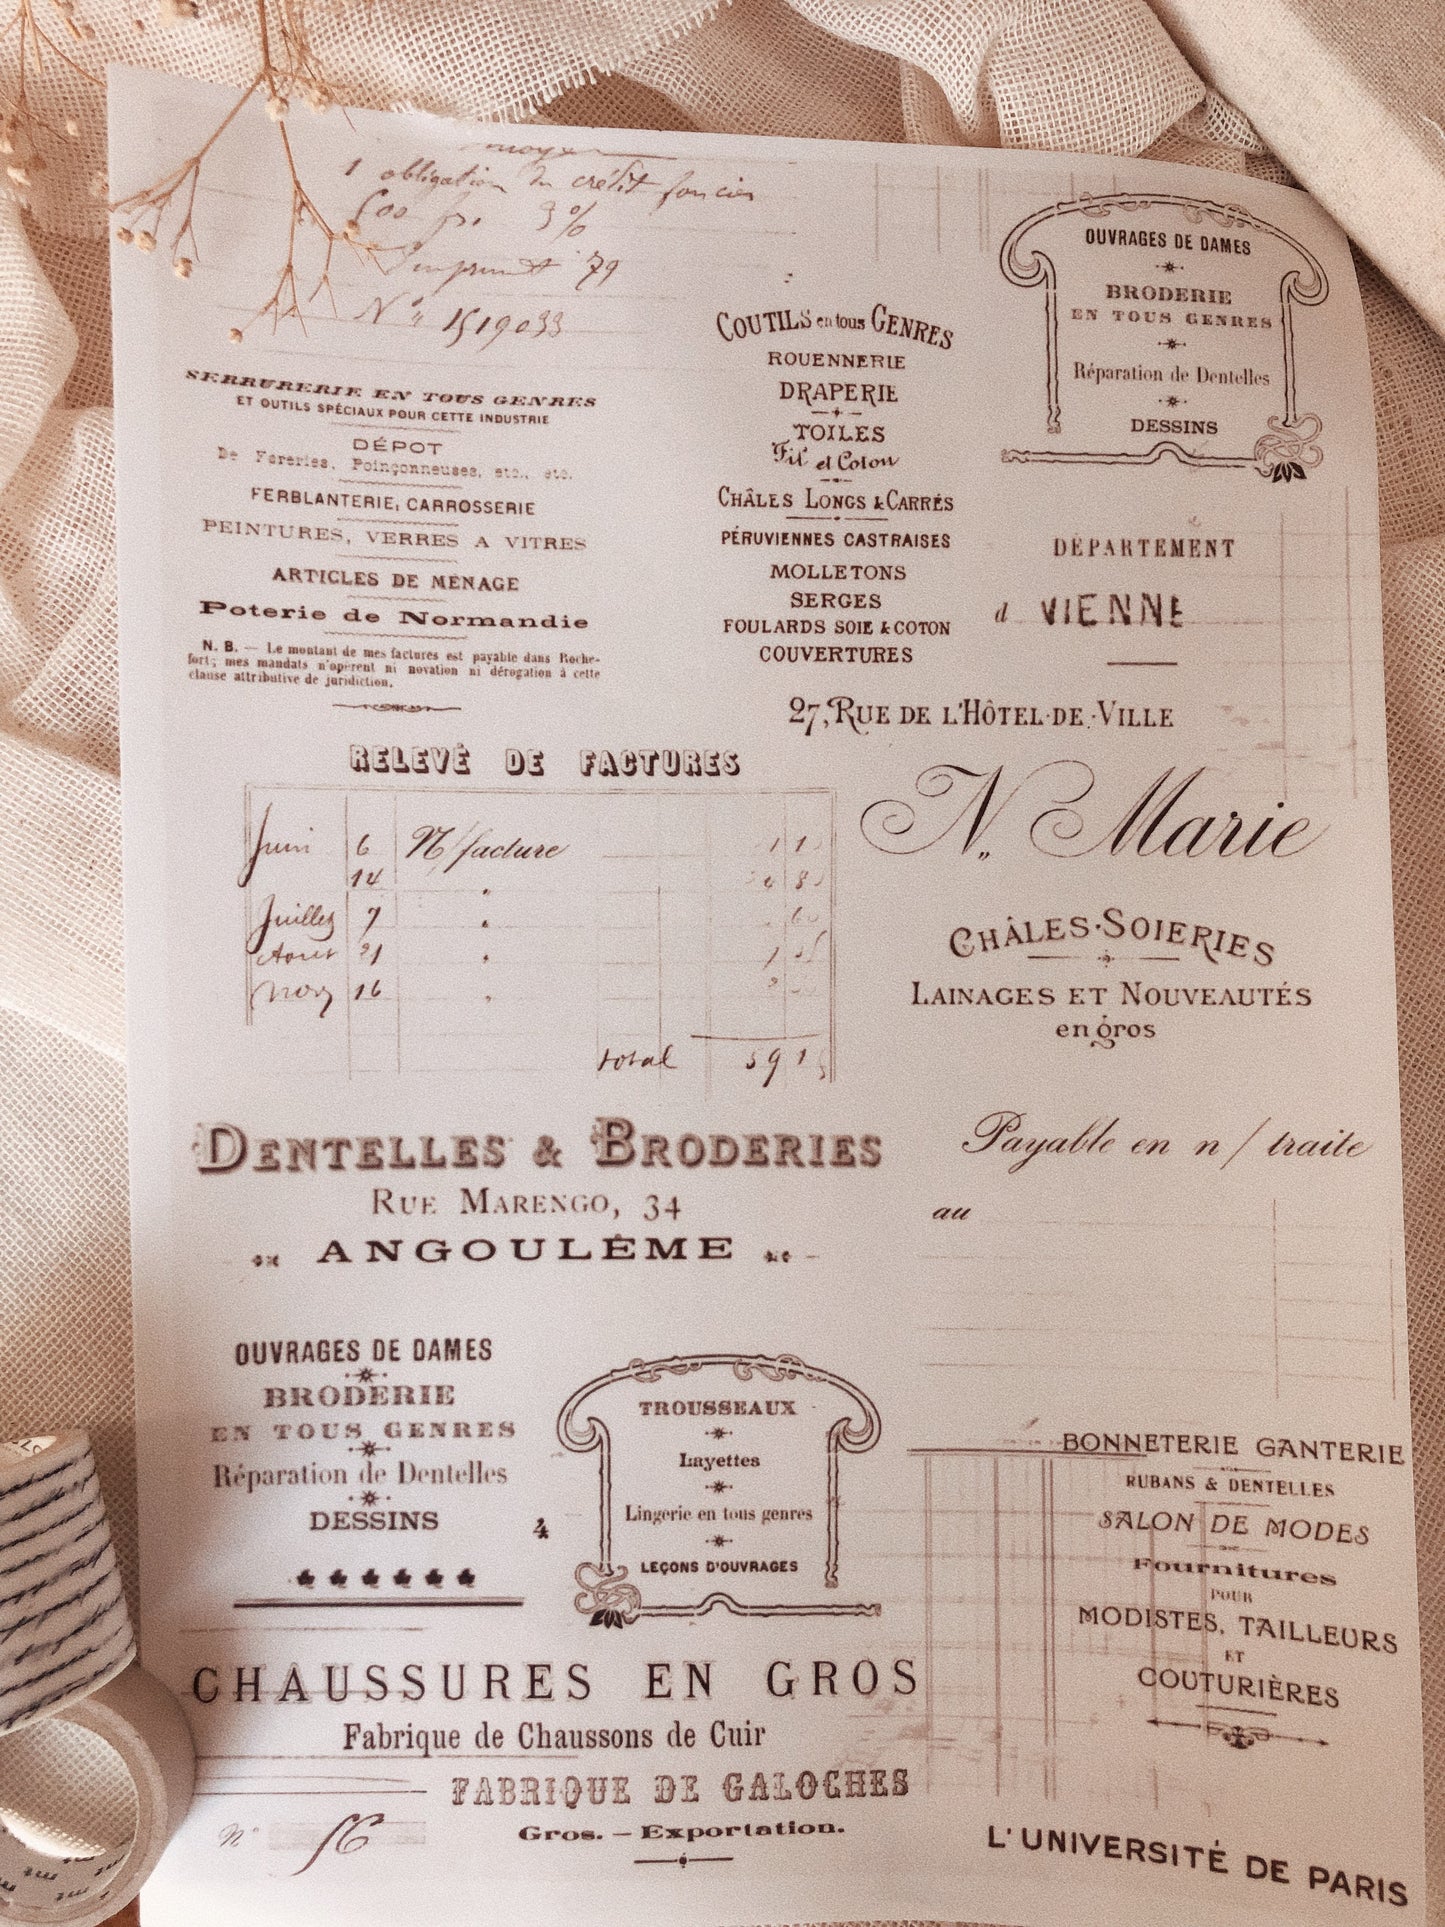 1 obligation du crédit foncier
500 fr. 3%
79
N° 1519033
SERRURERIE EN TOUS GENRES
ET OUTILS SPÉCIAUX POUR CETTE INDUSTRIE
DÉPOT
De Fereries, Poinçonneuses, etc., etc.
FERBLANTERIE, CARROSSERIE
PEINTURES, VERRES A VITRES
ARTICLES DE MÉNAGE
Poterie de Normandie
N. B. — Le montant de mes factures est payable dans Roche-
fort; mes mandats n'opèrent ni novation ni dérogation à cette
clause attributive de juridiction.
COUTILS en tous GENRES
ROUENNERIE
DRAPERIE
TOILES
Fil et Coton
CHÂLES LONGS & CARRÉS
PÉRUVIENNES CASTRAISES
MOLLETONS
SERGES
FOULARDS SOIE & COTON
COUVERTURES
OUVRAGES DE DAMES
BRODERIE
EN TOUS GENRES
Réparation de Dentelles
DESSINS
DÉPARTEMENT
d VIENNE
27, RUE DE L'HÔTEL-DE-VILLE
RELEVÉ DE FACTURES
Juin 6 N/facture
14 "
Juillet 7 "
Aout 21 "
Nov 16 "
total
N. Marie
CHÂLES-SOIERIES
LAINAGES ET NOUVEAUTÉS
en gros
DENTELLES & BRODERIES
RUE MARENGO, 34
ANGOULÊME
Payable en n/ traite
au
OUVRAGES DE DAMES
BRODERIE
EN TOUS GENRES
Réparation de Dentelles
DESSINS
4
TROUSSEAUX
Layettes
Lingerie en tous genres
LEÇONS D'OUVRAGES
BONNETERIE GANTERIE
RUBANS & DENTELLES
SALON DE MODES
Fournitures
POUR
MODISTES, TAILLEURS
ET
COUTURIÈRES
CHAUSSURES EN GROS
Fabrique de Chaussons de Cuir
FABRIQUE DE GALOCHES
Gros. — Exportation.
N° 56
L'UNIVERSITÉ DE PARIS